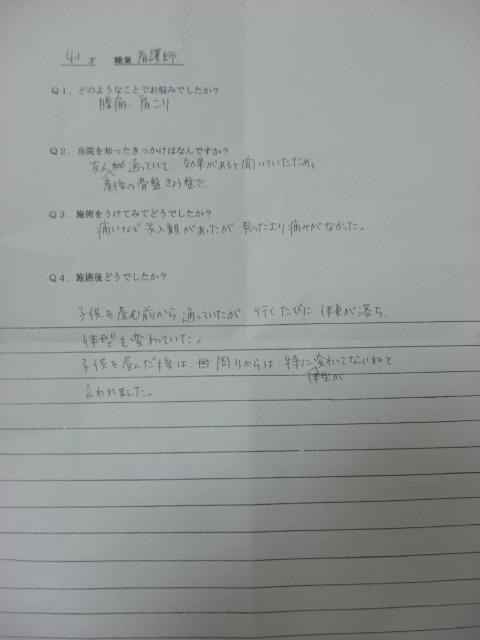 41才 職業 看護師
Q1、どのようなことでお悩みでしたか?
腰痛、肩こり
Q2、当院を知ったきっかけはなんですか?
友人が通っていて、効果があると聞いていたため。
産後の骨盤きょう整で、
Q3、施術をうけてみてどうでしたか?
痛いなど先入観があったが、思ったより痛みがなかった。
Q4、施術後どうでしたか?
子供を産む前から通っていたが、行くたびに体重が落ち、
体型も変わっていた。
子供を産んだ後は、周りからは、特に体型が変わってないねと、
言われました。